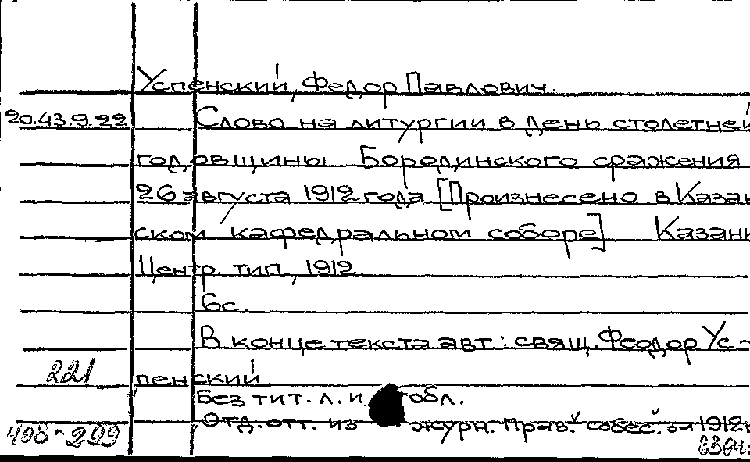 Успенский, Федор Павлович.
20.43.9.22 Слово на литургии в день столетней
годовщины Бородинского сражения
26 августа 1912 года [Произнесено в Казан
ском кафедральном соборе] Казань
Центр. тип., 1912
6с.
В конце текста авт: свящ. Феодор Ус-
221 пенский
Без тит. л. и обл.
Отд. отт. из журн. Прав. собес. за 1912